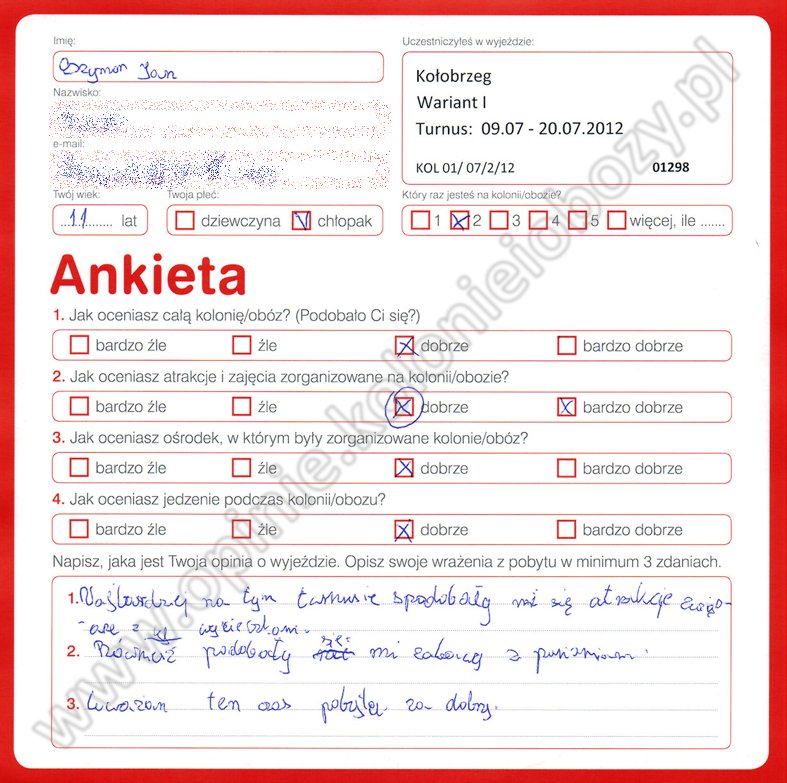 Imię:
Szymon Jan
Uczestniczyłeś w wyjeździe:
Kołobrzeg
Wariant I
Turnus: 09.07 - 20.07.2012
KOL 01/ 07/2/12 01298
Nazwisko:
e-mail:
Twój wiek:
...11........ lat
Twoja płeć:
dziewczyna chłopak
Który raz jesteś na kolonii/obozie?
1 2 3 4 5 więcej, ile .......
Ankieta
1. Jak oceniasz całą kolonię/obóz? (Podobało Ci się?)
bardzo źle źle dobrze bardzo dobrze
2. Jak oceniasz atrakcje i zajęcia zorganizowane na kolonii/obozie?
bardzo źle źle dobrze bardzo dobrze
3. Jak oceniasz ośrodek, w którym były zorganizowane kolonie/obóz?
bardzo źle źle dobrze bardzo dobrze
4. Jak oceniasz jedzenie podczas kolonii/obozu?
bardzo źle źle dobrze bardzo dobrze
Napisz, jaka jest Twoja opinia o wyjeździe. Opisz swoje wrażenia z pobytu w minimum 3 zdaniach.
1. Najbardziej na tym turnusie spodobały mi się atrakcje związ-
-ane z wycieczkami.
2. Również podobały się mi zabawy z
3. Uważam ten czas pobytu za dobry.
www.opinie.kolonieiobozy.pl